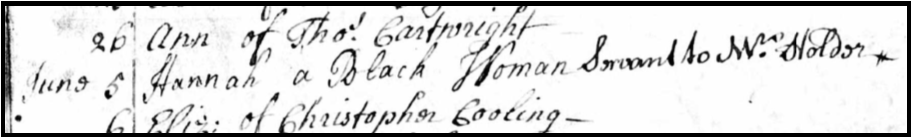 26 Ann of Tho.s Cartwright
June 5 Hannah a Black Woman Servant to Mrs Holder
6 Eliz: of Christopher Cooling